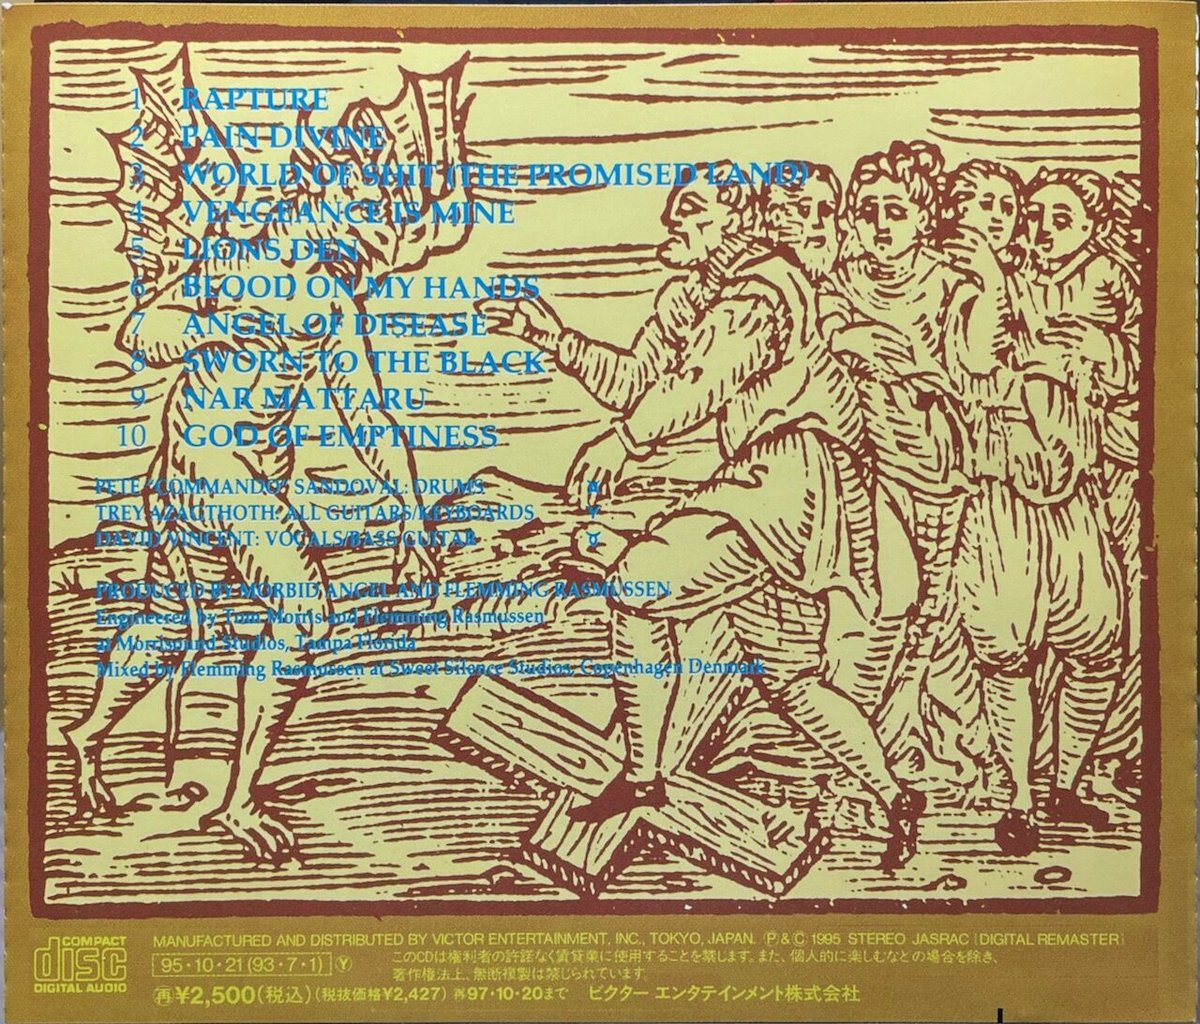 1 RAPTURE
2 PAIN DIVINE
3 WORLD OF SHIT (THE PROMISED LAND)
4 VENGEANCE IS MINE
5 LIONS DEN
6 BLOOD ON MY HANDS
7 ANGEL OF DISEASE
8 SWORN TO THE BLACK
9 NAR MATTARU
10 GOD OF EMPTINESS
PETE "COMMANDO" SANDOVAL: DRUMS
TREY AZAGTHOTH: ALL GUITARS/KEYBOARDS ♈
DAVID VINCENT: VOCALS/BASS GUITAR ♉
PRODUCED BY MORBID ANGEL AND FLEMMING RASMUSSEN
Engineered by Tom Morris and Flemming Rasmussen
at Morrisound Studios, Tampa Florida
Mixed by Flemming Rasmussen at Sweet Silence Studios, Copenhagen Denmark
COMPACT
disc
DIGITAL AUDIO
MANUFACTURED AND DISTRIBUTED BY VICTOR ENTERTAINMENT, INC., TOKYO, JAPAN. Ⓟ&© 1995 STEREO JASRAC [DIGITAL REMASTER]
95・10・21(93・7・1) Ⓨ
このCDは権利者の許諾なく賃貸業に使用することを禁じます。また、個人的に楽しむなどの場合を除き、
著作権法上、無断複製は禁じられています。
再¥2,500(税込)(税抜価格¥2,427) 再97・10・20まで ビクター エンタテインメント株式会社